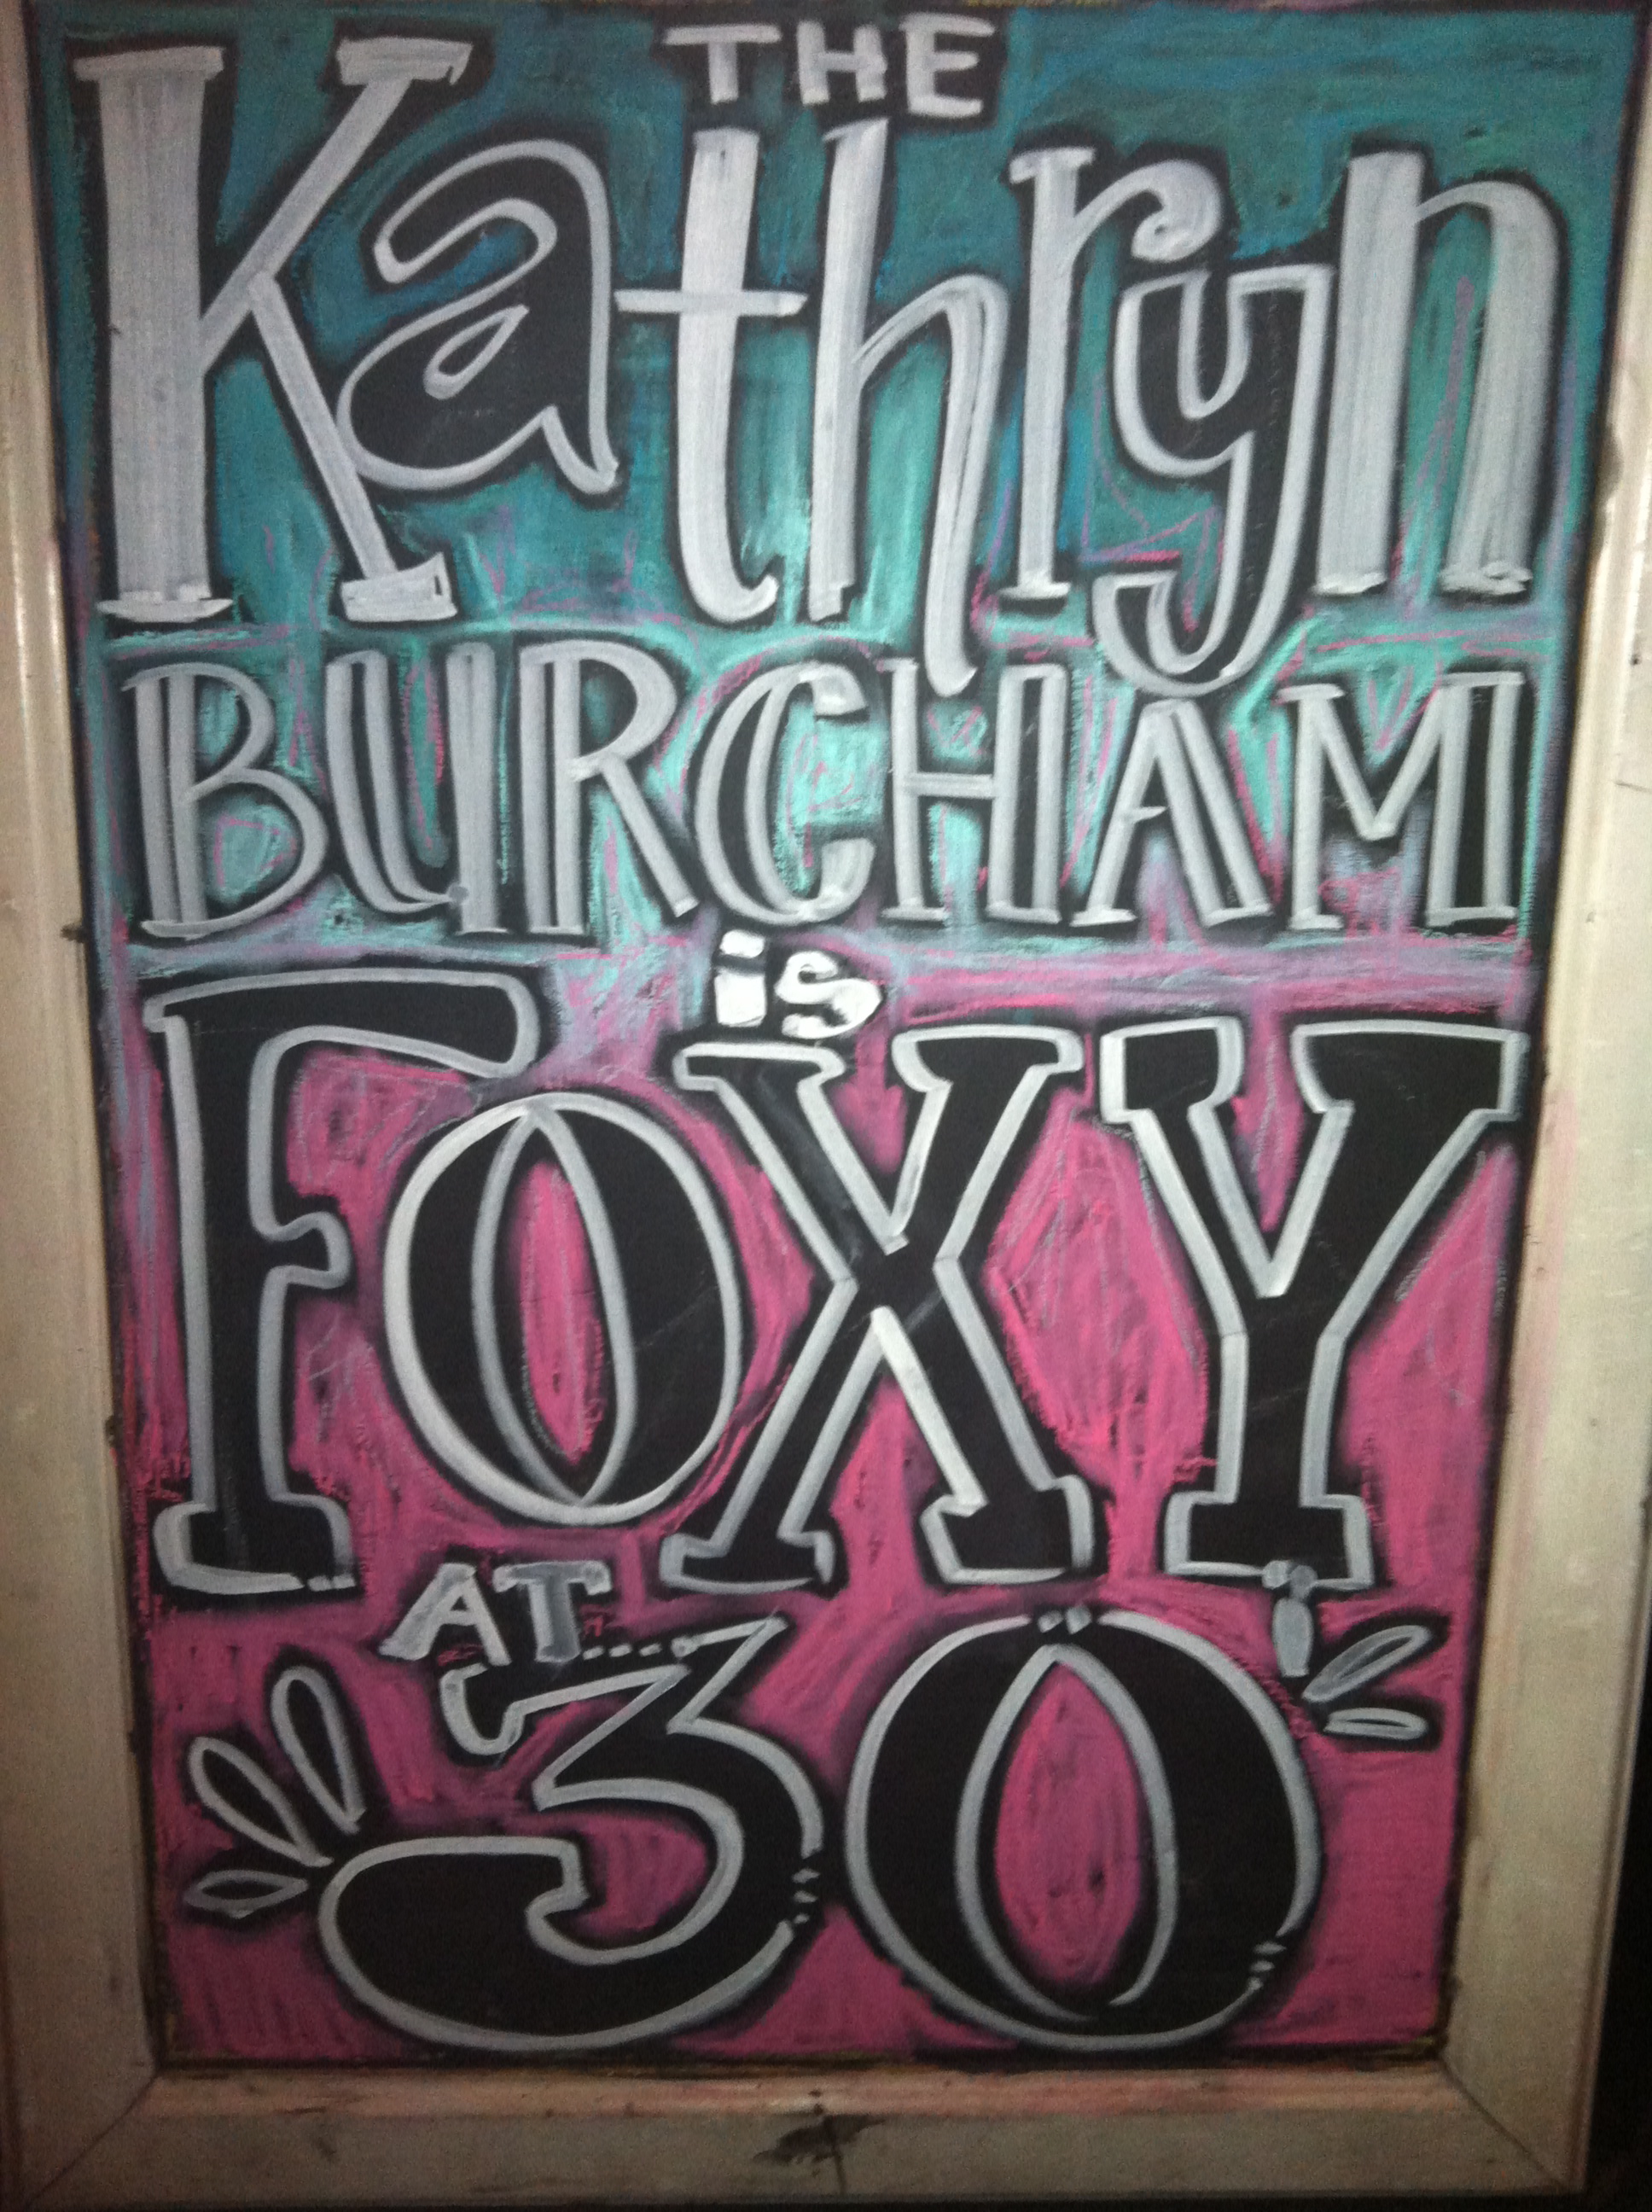 THE
Kathryn
BURCHAM
is
FOXY
AT
30